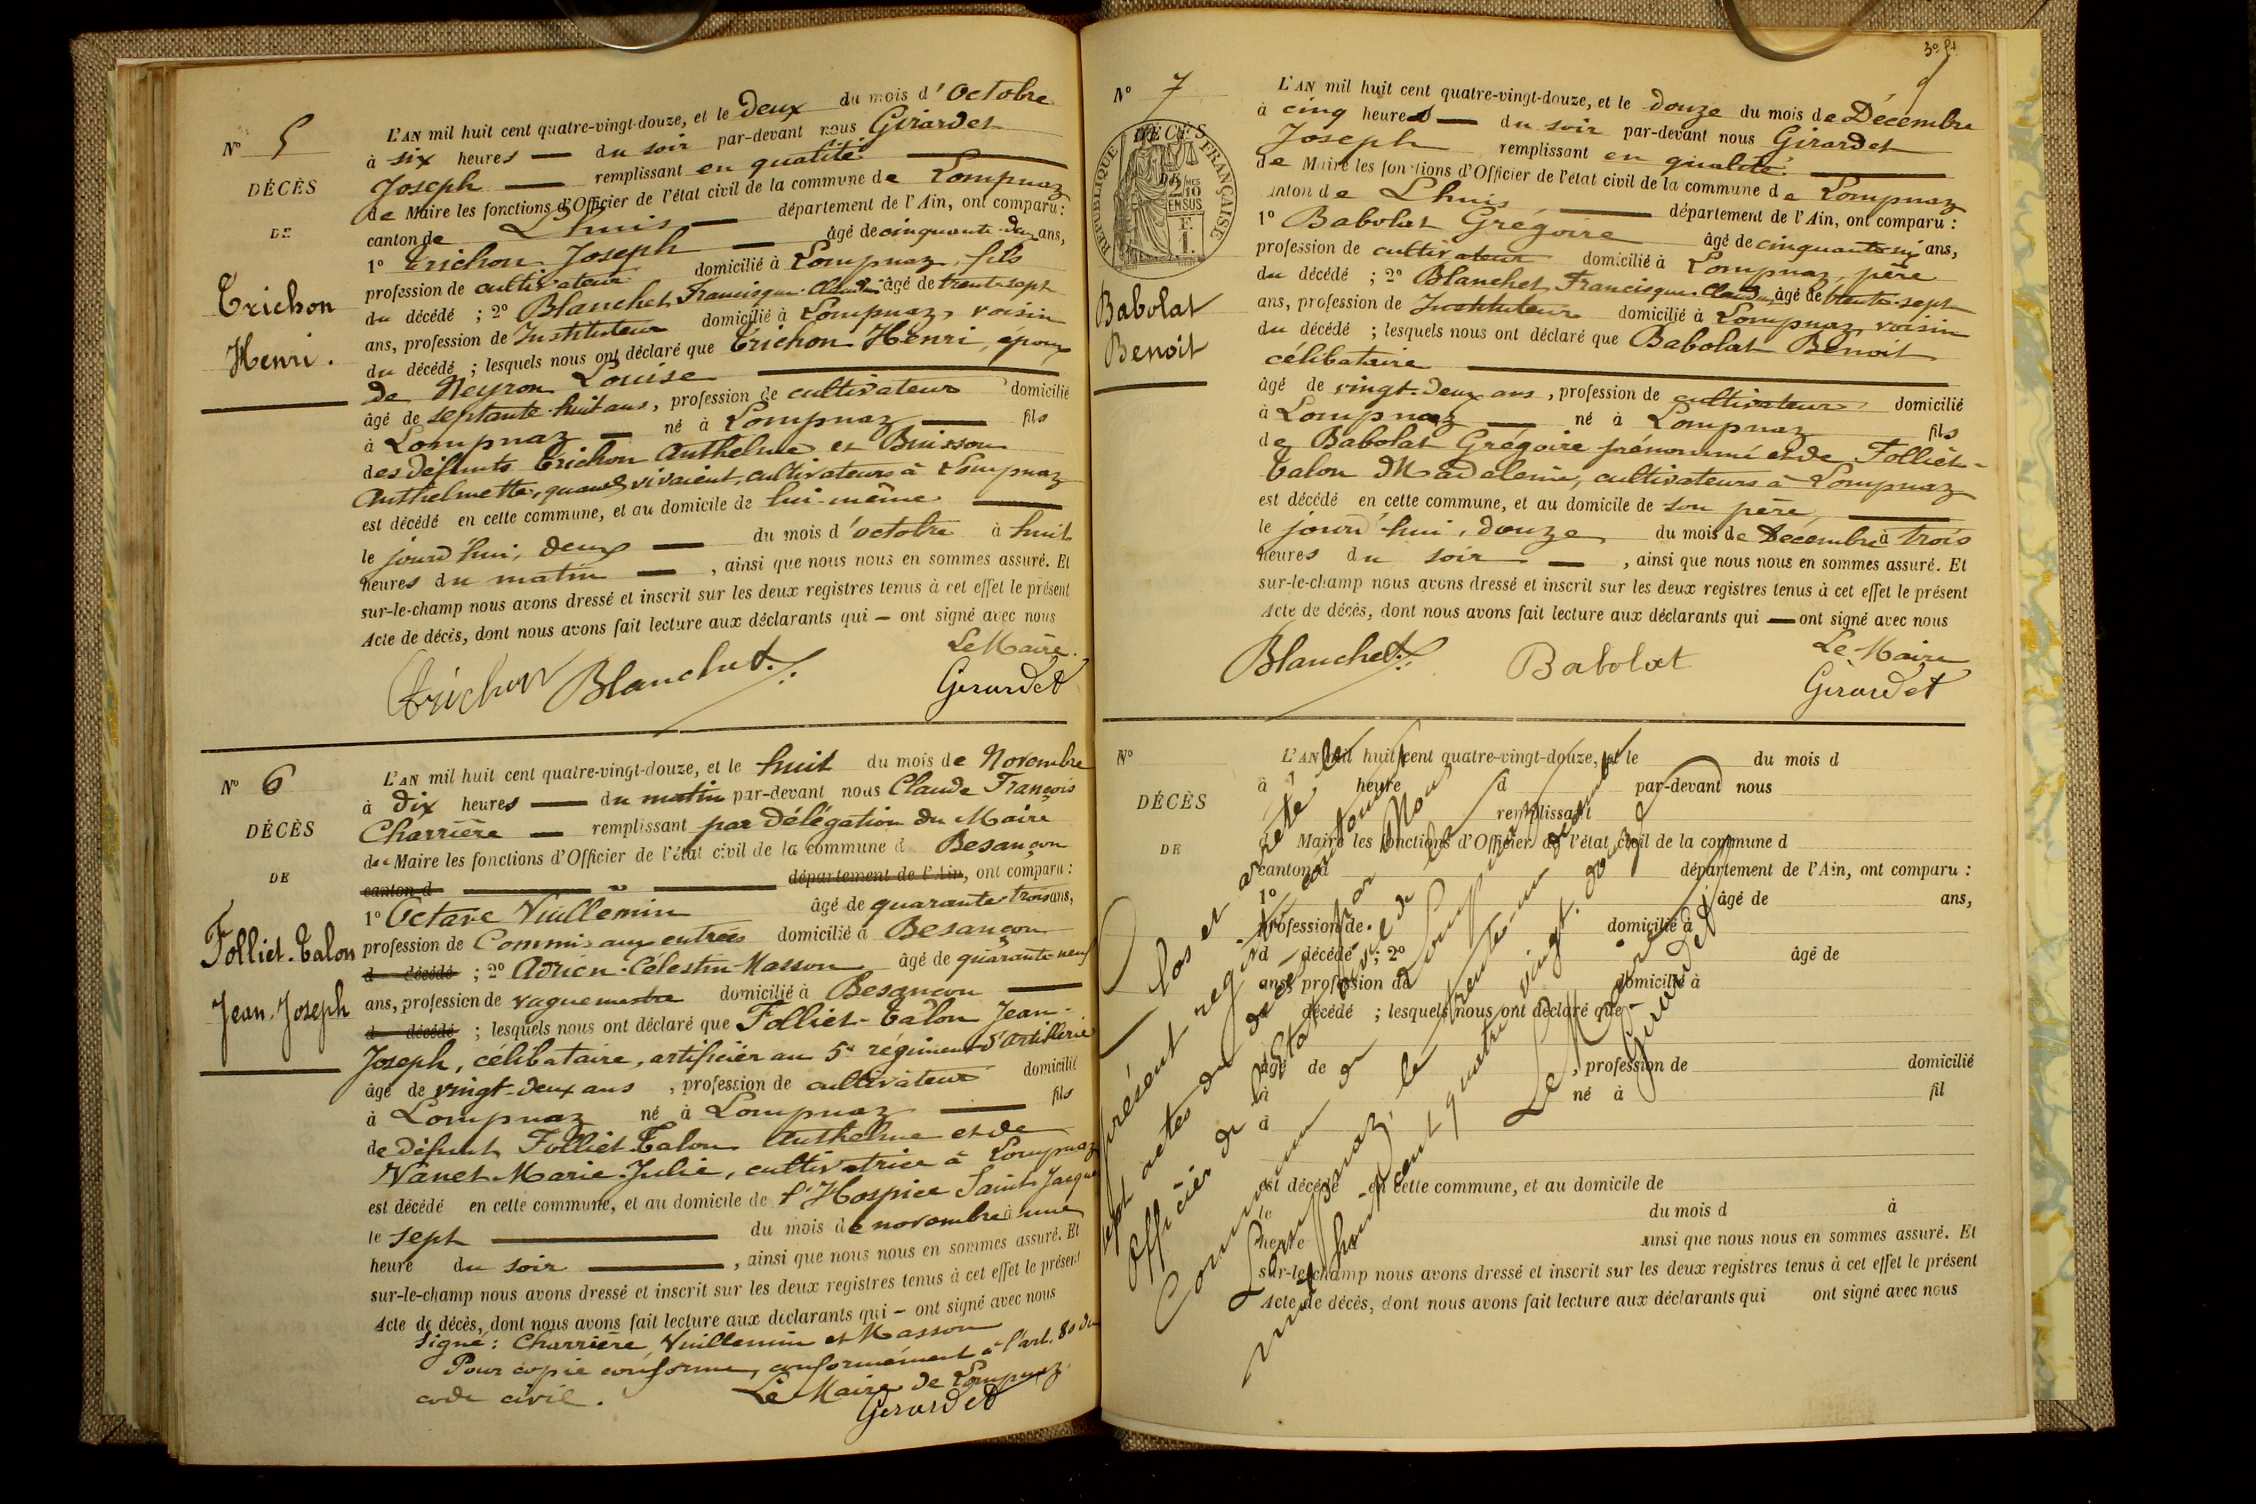 N° 5
DÉCÈS
DE
Trichon
Henri.
L'AN mil huit cent quatre-vingt-douze, et le deux du mois d'Octobre
à six heures — du soir par-devant nous Girardet
Joseph — remplissant en qualité —
de Maire les fonctions d'Officier de l'état civil de la commune de Lompnaz
canton de Lhuis — département de l'Ain, ont comparu :
1° Trichon Joseph — âgé de cinquante-deux ans,
profession de cultivateur domicilié à Lompnaz, fils
du décédé ; 2° Blanchet Francisque Claudius âgé de trente-sept
ans, profession de Instituteur domicilié à Lompnaz, voisin
du décédé ; lesquels nous ont déclaré que Trichon Henri, époux
de Neyron Louise —
âgé de septante-huit ans, profession de cultivateur domicilié
à Lompnaz — né à Lompnaz — fils
des défunts Trichon Anthelme et Buisson
Anthelmette, quand vivaient, cultivateurs à Lompnaz
est décédé en cette commune, et au domicile de lui-même —
le jourd'hui, deux — du mois d'octobre à huit
heures du matin — , ainsi que nous nous en sommes assuré. Et
sur-le-champ nous avons dressé et inscrit sur les deux registres tenus à cet effet le présent
Acte de décès, dont nous avons fait lecture aux déclarants qui — ont signé avec nous
Le Maire.
Trichon Blanchet Girardet
N° 6
DÉCÈS
DE
Folliet-Talon
Jean-Joseph
L'AN mil huit cent quatre-vingt-douze, et le huit du mois de Novembre
à dix heures — du matin par-devant nous Claude François
Charrière — remplissant par délégation du Maire
de Maire les fonctions d'Officier de l'état civil de la commune d Besançon
canton d — département de l'Ain, ont comparu :
1° Octave Vuillemin âgé de quarante trois ans,
profession de Commis aux entrées domicilié à Besançon
d décédé ; 2° Adrien-Célestin Masson âgé de quarante-neuf
ans, profession de vaguemestre domicilié à Besançon —
d décédé ; lesquels nous ont déclaré que Folliet-Talon Jean-
Joseph, célibataire, artificier au 5e régiment d'Artillerie
âgé de vingt-deux ans , profession de cultivateur domicilié
à Lompnaz né à Lompnaz — fils
de défunt Folliet-Talon Anthelme et de
Nanet Marie-Julie, cultivatrice à Lompnaz
est décédé en cette commune, et au domicile de l'Hospice Saint Jacques
le sept — du mois de novembre à une
heure du soir — , ainsi que nous nous en sommes assuré. Et
sur-le-champ nous avons dressé et inscrit sur les deux registres tenus à cet effet le présent
Acte de décès, dont nous avons fait lecture aux déclarants qui — ont signé avec nous
Signé : Charrière, Vuillemin et Masson
Pour copie conforme, conformément à l'art. 80 du
code civil. Le Maire de Lompnaz.
Girardet
N° 7
DÉCÈS
RÉPUBLIQUE FRANÇAISE
2 10MES
EN SUS
F.
1.
Babolat
Benoit
L'AN mil huit cent quatre-vingt-douze, et le douze du mois de Décembre
à cinq heures — du soir par-devant nous Girardet
Joseph remplissant en qualité —
de Maire les fonctions d'Officier de l'état civil de la commune de Lompnaz
anton de Lhuis — département de l'Ain, ont comparu :
1° Babolat Grégoire âgé de cinquante-six ans,
profession de cultivateur domicilié à Lompnaz, père
du décédé ; 2° Blanchet Francisque Claudius, âgé de trente-sept
ans, profession de Instituteur domicilié à Lompnaz, voisin
du décédé ; lesquels nous ont déclaré que Babolat Benoit
célibataire —
âgé de vingt-deux ans , profession de cultivateur domicilié
à Lompnaz — né à Lompnaz fils
de Babolat Grégoire prénommé et de Folliet-
Talon Madeleine, cultivateurs à Lompnaz
est décédé en cette commune, et au domicile de son père —
le jourd'hui, douze du mois de Décembre à trois
heures du soir — , ainsi que nous nous en sommes assuré. Et
sur-le-champ nous avons dressé et inscrit sur les deux registres tenus à cet effet le présent
Acte de décès, dont nous avons fait lecture aux déclarants qui — ont signé avec nous
Le Maire
Blanchet Babolat Girardet
N°
DÉCÈS
DE
L'AN mil huit cent quatre-vingt-douze, et le du mois d
à heure d par-devant nous
remplissant
d Maire les fonctions d'Officier de l'état civil de la commune d
canton d département de l'Ain, ont comparu :
1° âgé de ans,
profession de domicilié à
d décédé ; 2° âgé de
ans, profession de domicilié à
d décédé ; lesquels nous ont déclaré que
âgé de , profession de domicilié
à né à fil
d
est décédé en cette commune, et au domicile de
le du mois d à
heure ainsi que nous nous en sommes assuré. Et
sur-le-champ nous avons dressé et inscrit sur les deux registres tenus à cet effet le présent
Acte de décès, dont nous avons fait lecture aux déclarants qui ont signé avec nous
Clos et arrêté le
présent registre contenant
sept actes de décès par Nous
officier de l'état civil de la
Commune de Lompnaz
Lompnaz, le trente-un décembre
mil huit cent quatre-vingt-douze
Le Maire
Girardet